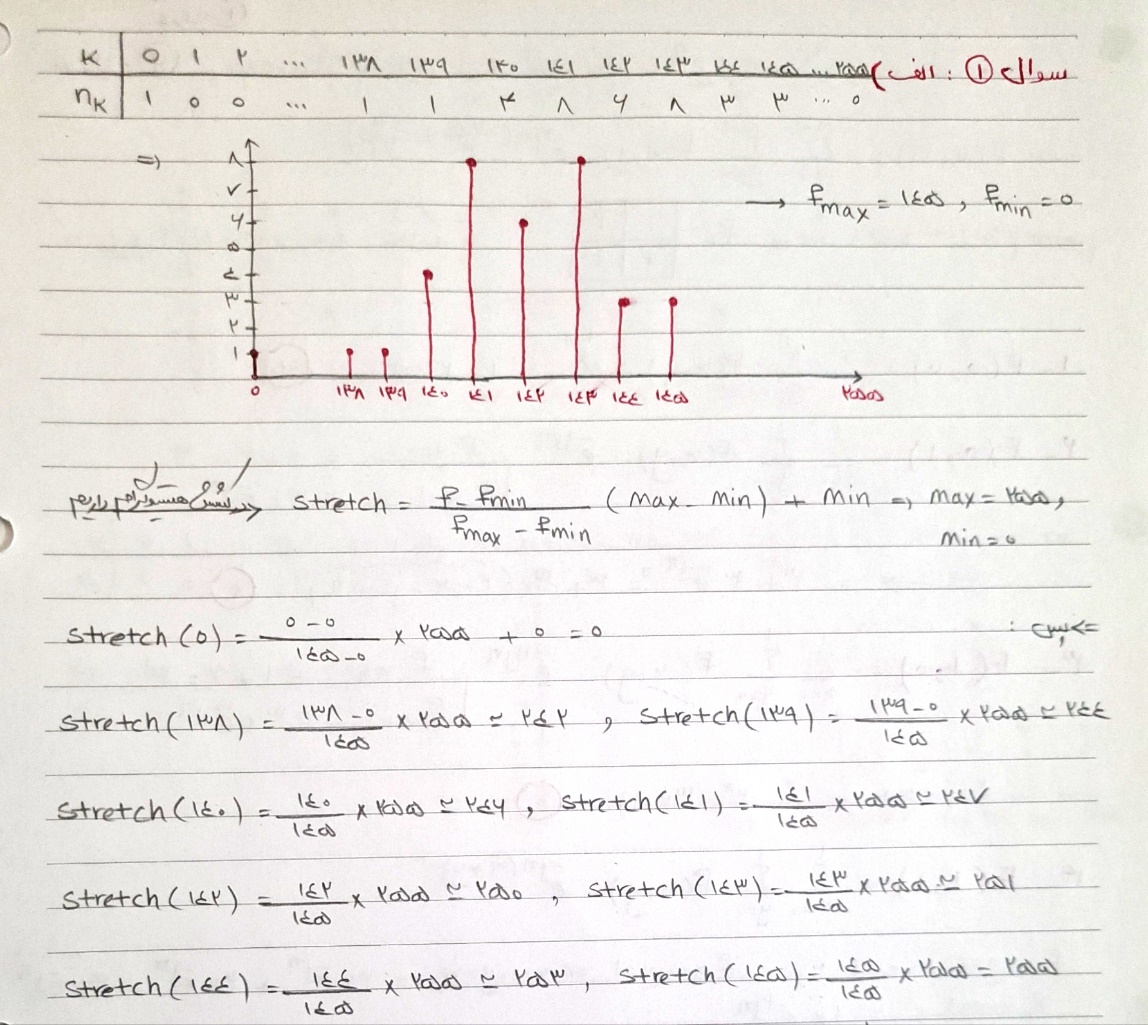 سوال ①: الف)
K 0 1 ۲ ... ۱۳۸ ۱۳۹ ۱۴۰ ۱۴۱ ۱۴۲ ۱۴۳ ۱۴۴ ۱۴۵ ... ۲۵۵
nK 1 0 0 ... ۱ ۱ ۴ ۸ ۶ ۸ ۳ ۳ ... 0
=>
۸
۷
۶
۵
۴
۳
۲
۱
0 ۱۳۸ ۱۳۹ ۱۴۰ ۱۴۱ ۱۴۲ ۱۴۳ ۱۴۴ ۱۴۵ ۲۵۵
→ fmax = ۱۴۵, fmin = 0
هیستوگرام داریم → stretch = f - fmin / fmax - fmin (max - min) + min => max = ۲۵۵,
min = 0
=> پس :
stretch (0) = 0 - 0 / ۱۴۵ - 0 × ۲۵۵ + 0 = 0
stretch (۱۳۸) = ۱۳۸ - 0 / ۱۴۵ × ۲۵۵ ≃ ۲۴۲ , stretch (۱۳۹) = ۱۳۹ - 0 / ۱۴۵ × ۲۵۵ ≃ ۲۴۴
stretch (۱۴۰) = ۱۴۰ / ۱۴۵ × ۲۵۵ ≃ ۲۴۶ , stretch (۱۴۱) = ۱۴۱ / ۱۴۵ × ۲۵۵ ≃ ۲۴۷
stretch (۱۴۲) = ۱۴۲ / ۱۴۵ × ۲۵۵ ≃ ۲۵۰ , stretch (۱۴۳) = ۱۴۳ / ۱۴۵ × ۲۵۵ ≃ ۲۵۱
stretch (۱۴۴) = ۱۴۴ / ۱۴۵ × ۲۵۵ ≃ ۲۵۳ , stretch (۱۴۵) = ۱۴۵ / ۱۴۵ × ۲۵۵ = ۲۵۵